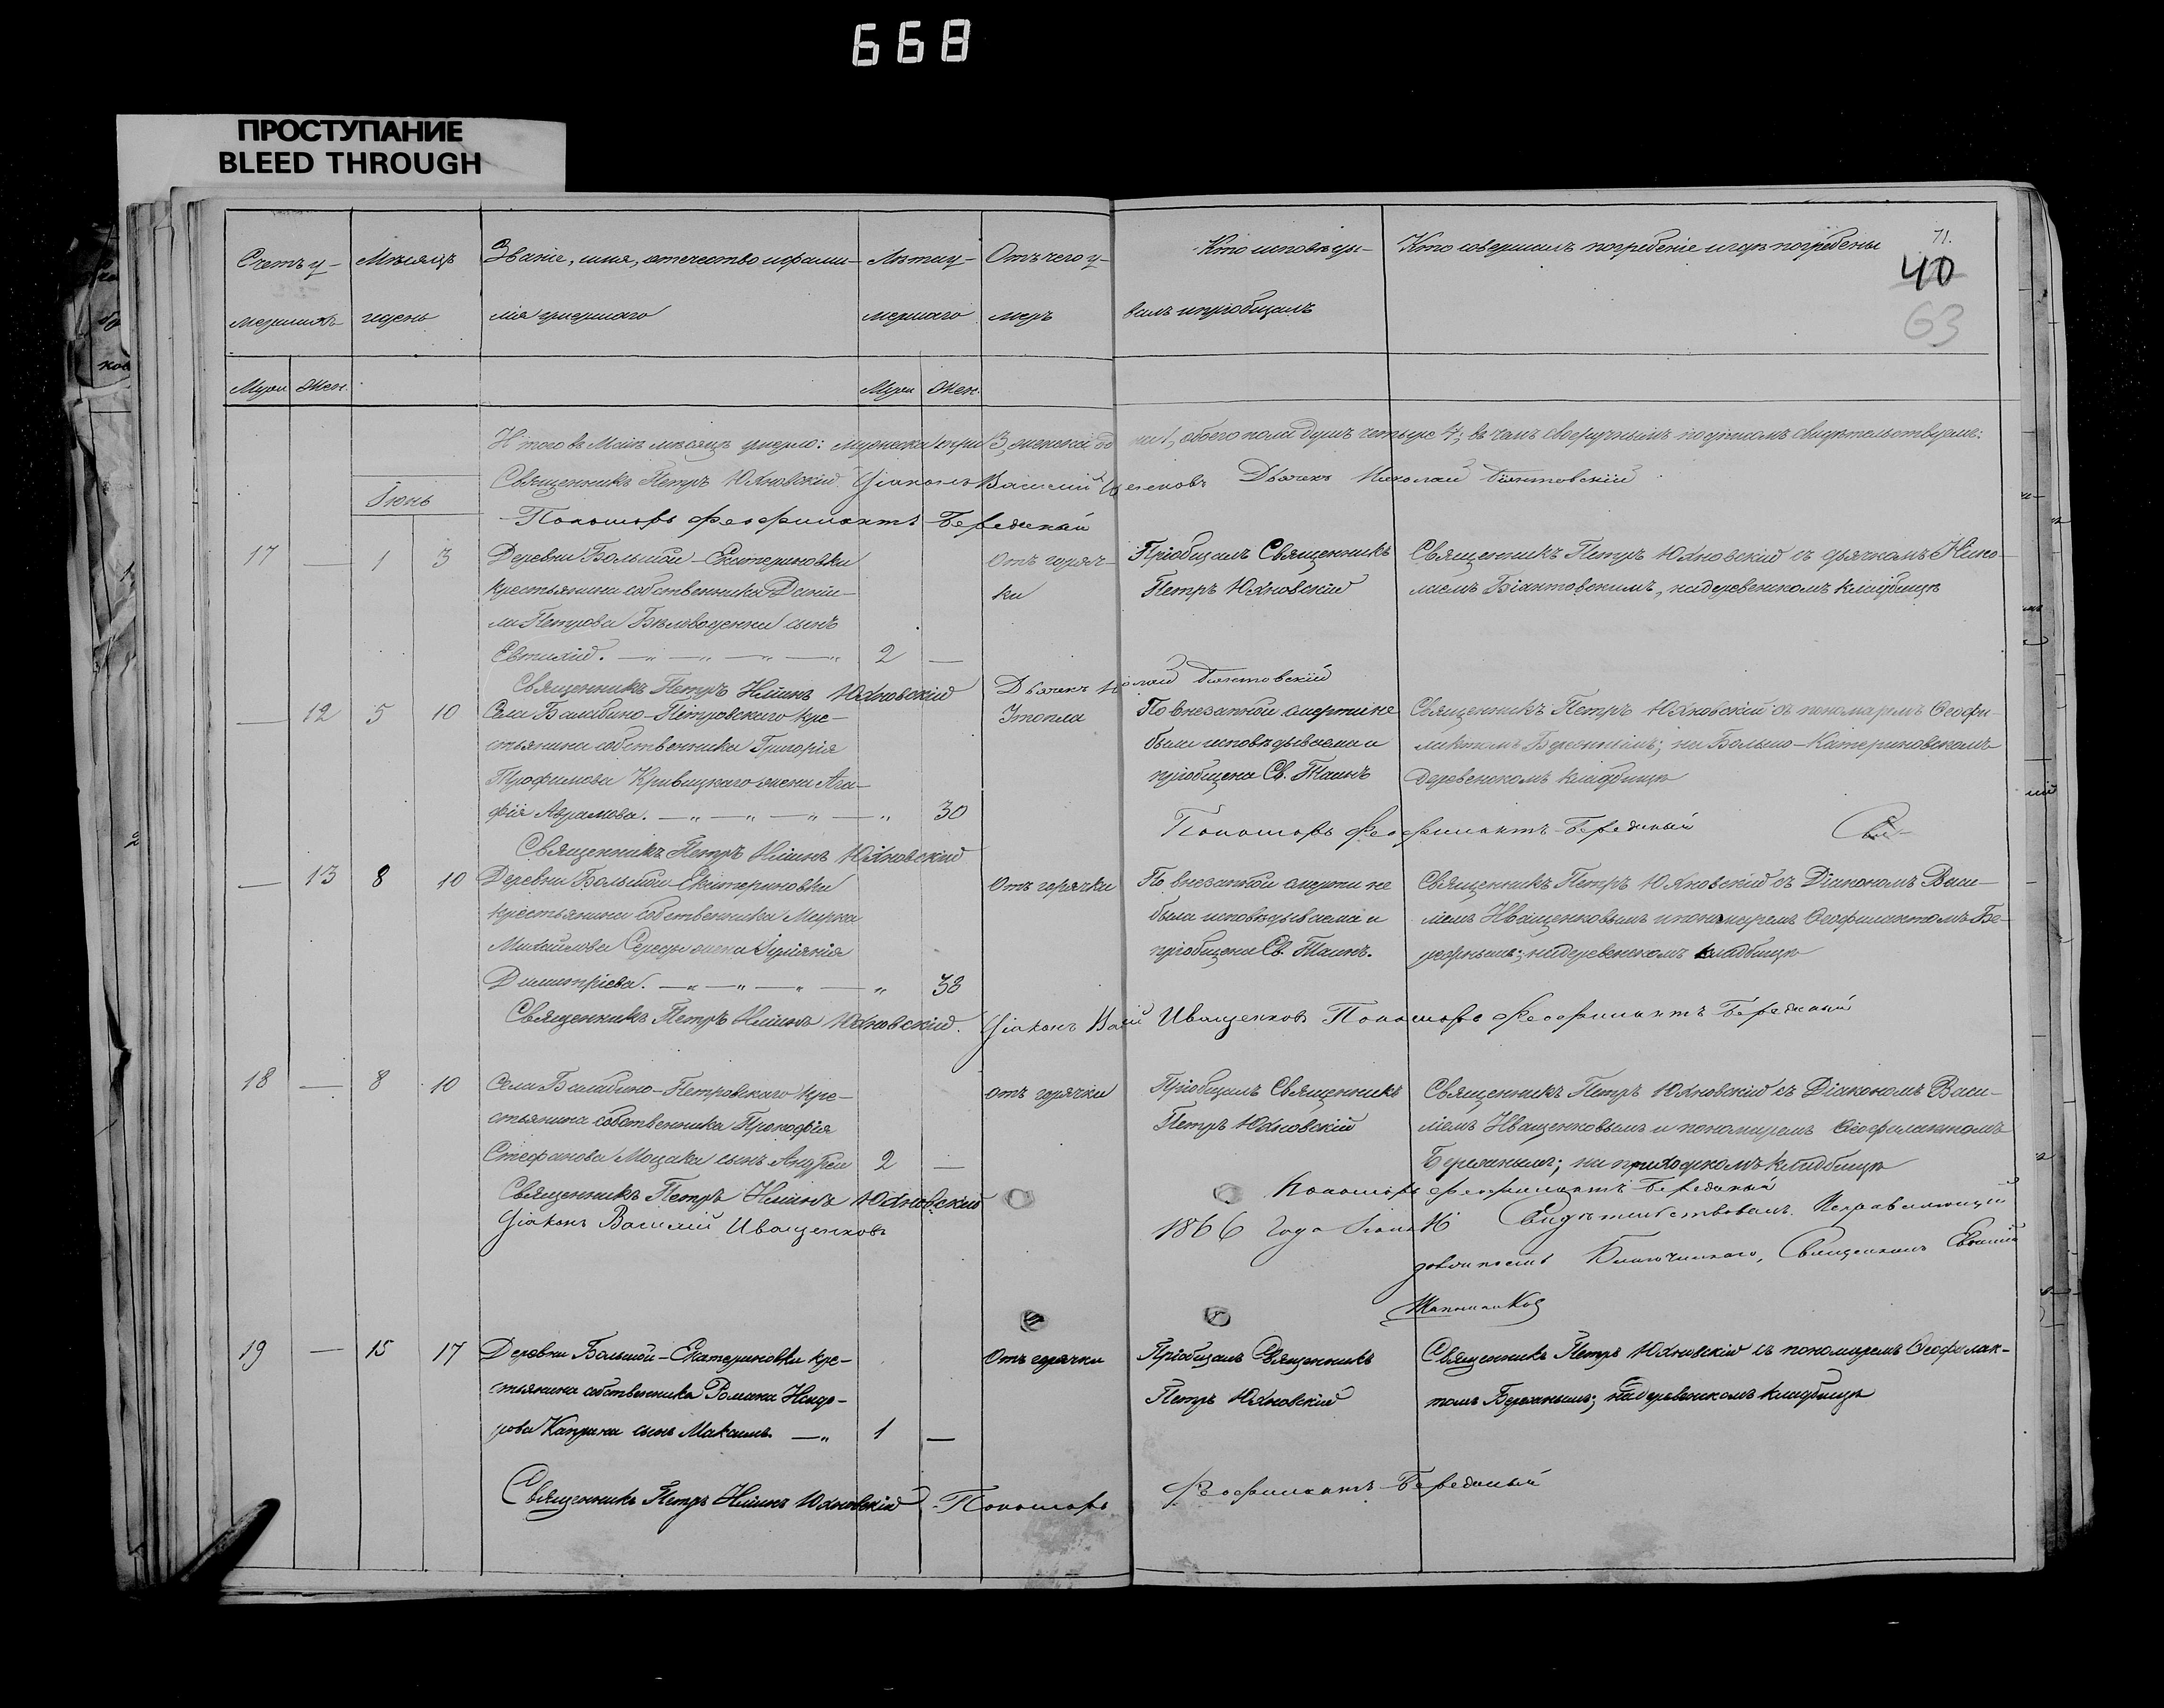 668
ПРОСТУПАНИЕ
BLEED THROUGH
71.
40
63
Счетъ у-
мершихъ
Мѣсяцъ
и день
Званіе, имя, отечество и фами-
лія умершаго
Лѣта у-
мершаго
Отъ чего у-
меръ
Кто исповѣды-
валъ и пріобщалъ
Кто совершалъ погребеніе и гдѣ погребены
Муж Жен.
Муж Жен.
Итого въ Маѣ мѣсяцѣ умерло: мужеска три 3, женска 1, обоего пола душъ четыре 4; въ чемъ своеручнымъ подписомъ свидѣтельствуемъ:
Священникъ Петръ Юхновскій Діаконъ Василій Дьячекъ Николай Біантовскій
Пономарь Феофилактъ Бережный
Іюнь
17 — 1 3
Деревни Большой-Екатериновки
крестьянина собственника Дани-
ла Петрова Бѣловоденка сынъ
Евтихій. 2 —
Отъ горяч-
ки
Пріобщалъ Священникъ
Петръ Юхновскій
Священникъ Петръ Юхновскій съ дьячкомъ Нико-
лаемъ Біантовскимъ, на деревенскомъ кладбищѣ
Священникъ Петръ Юхновскій Дьячекъ Николай Біантовскій
— 12 5 10
Села Балабино-Петровскаго кре-
стьянина собственника Григорія
Трофимова Кривицкаго жена Ага-
фія Аврамова. 30
Утопла
По внезапной смерти не
была исповѣдываема и
пріобщена Св. Таинъ
Священникъ Петръ Юхновскій съ пономаремъ Ѳеофи-
лактомъ Бережнымъ; на Больше-Катериновскомъ
деревенскомъ кладбищѣ
Пономарь Феофилактъ Бережный
Священникъ Петръ Юхновскій
— 13 8 10
Деревни Большой Екатериновки
крестьянина собственника Марка
Михайлова Середы жена
Димитріева. 38
Отъ горячки
По внезапной смерти не
была исповѣдываема и
пріобщена Св. Таинъ.
Священникъ Петръ Юхновскій съ Діакономъ Васи-
ліемъ Иващенковымъ и пономаремъ Ѳеофилактомъ Бе-
режнымъ; на деревенскомъ кладбищѣ
Священникъ Петръ Юхновскій. Діаконъ Василій Иващенковъ Пономарь Феофилактъ Бережный
18 — 8 10
Села Балабино-Петровскаго кре-
стьянина собственника Прокофія
Стефанова Моцака сынъ Андрей 2 —
отъ горячки
Пріобщалъ Священникъ
Петръ Юхновскій
Священникъ Петръ Юхновскій съ Діакономъ Васи-
ліемъ Иващенковымъ и пономаремъ Ѳеофилактомъ
Бережнымъ; на приходскомъ кладбищѣ
Священникъ Петръ Юхновскій
Пономарь Феофилактъ Бережный
Діаконъ Василій Иващенковъ
1866 Года Іюня 16 Свидѣтельствовалъ Исправляющій
должность Благочиннаго, Священникъ
19 — 15 17
Деревни Большой-Екатериновки кре-
стьянина собственника Романа Исидо-
рова Каприна сынъ Максимъ 1 —
Отъ горячки
Пріобщалъ Священникъ
Петръ Юхновскій
Священникъ Петръ Юхновскій съ пономаремъ Ѳеофилак-
томъ Бережнымъ; на деревенскомъ кладбищѣ
Священникъ Петръ Юхновскій Пономарь Феофилактъ Бережный